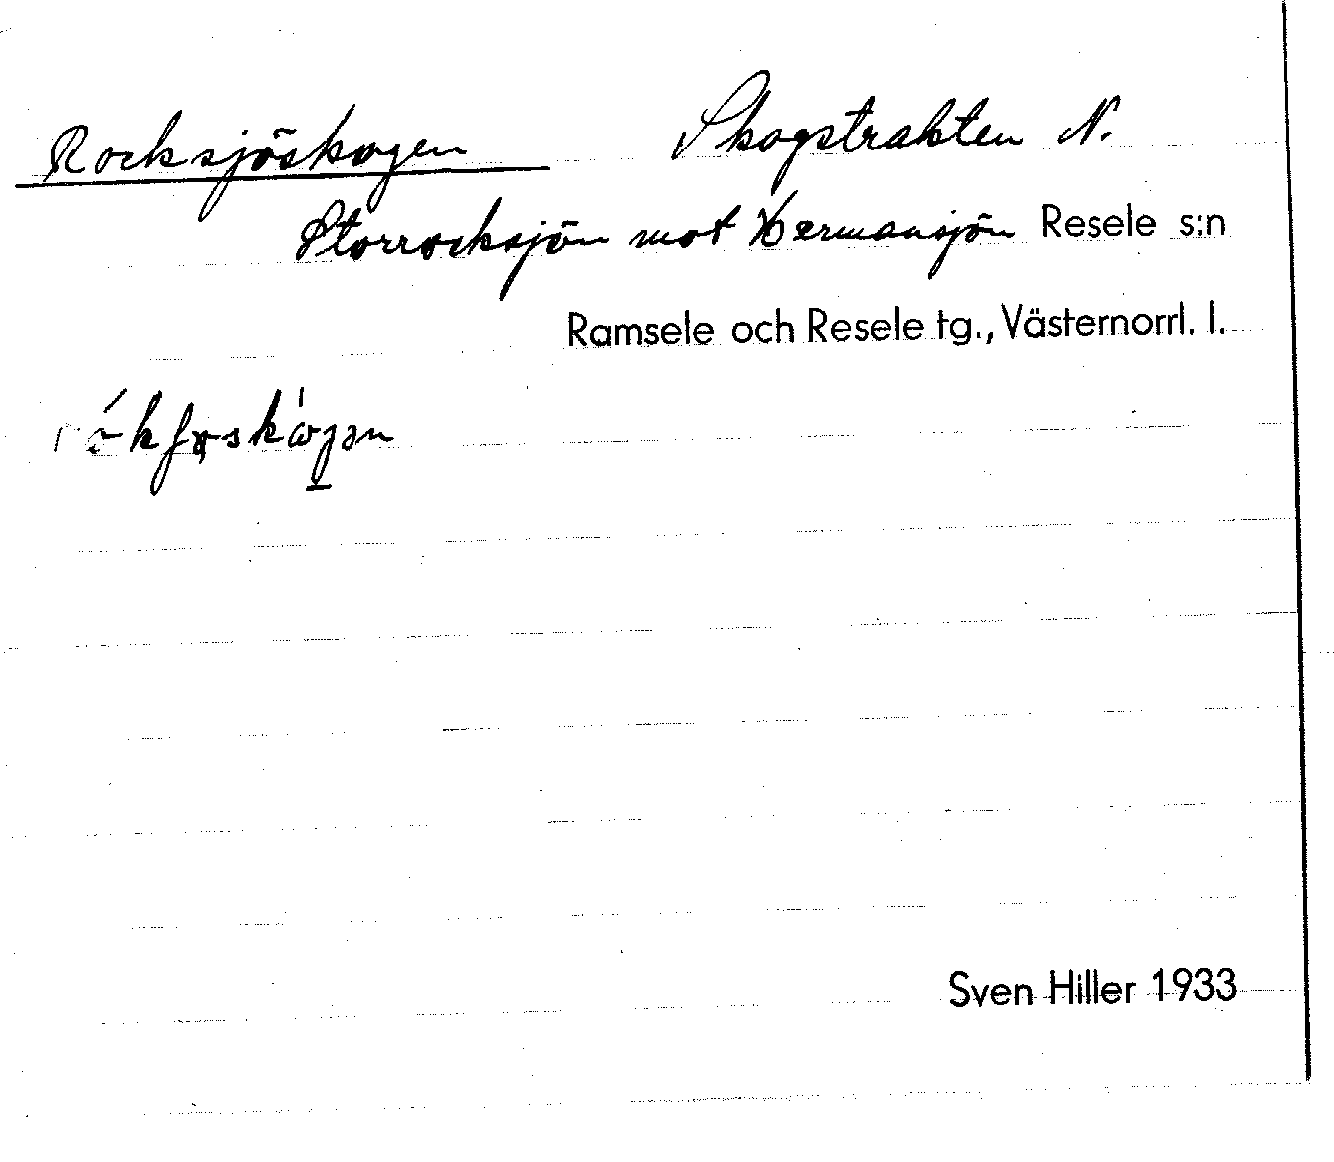 Rocksjöskogen Skogstrakten N.
Storrocksjön mot Hermansjön Resele s:n
Ramsele och Resele tg., Västernorrl. l.
Sven Hiller 1933